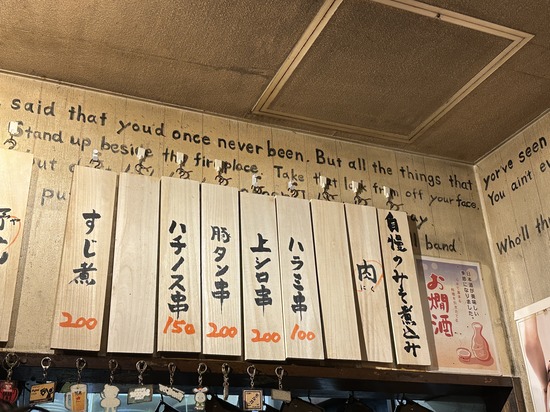 said that you'd once never been. But all the things that
Stand up beside the fireplace. Take that look from off your face.
you've seen
You ain't e
band
Who'll th
自慢のみそ煮込み
肉
にく
ハラミ串
100
上シロ串
200
豚タン串
200
ハチノス串
150
すじ煮
200
お燗酒